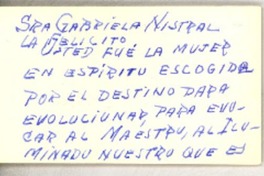 SRA GABRIELA NISTRAL
LA FELICITO
USTED FUÉ LA MUJER
EN ESPÍRITU ESCOGIDA
POR EL DESTINO PARA
EVOLUCIUNAR, PARA EVO-
CAR AL MAESTRU, AL ILU-
MINADU NUESTRU QUE ES